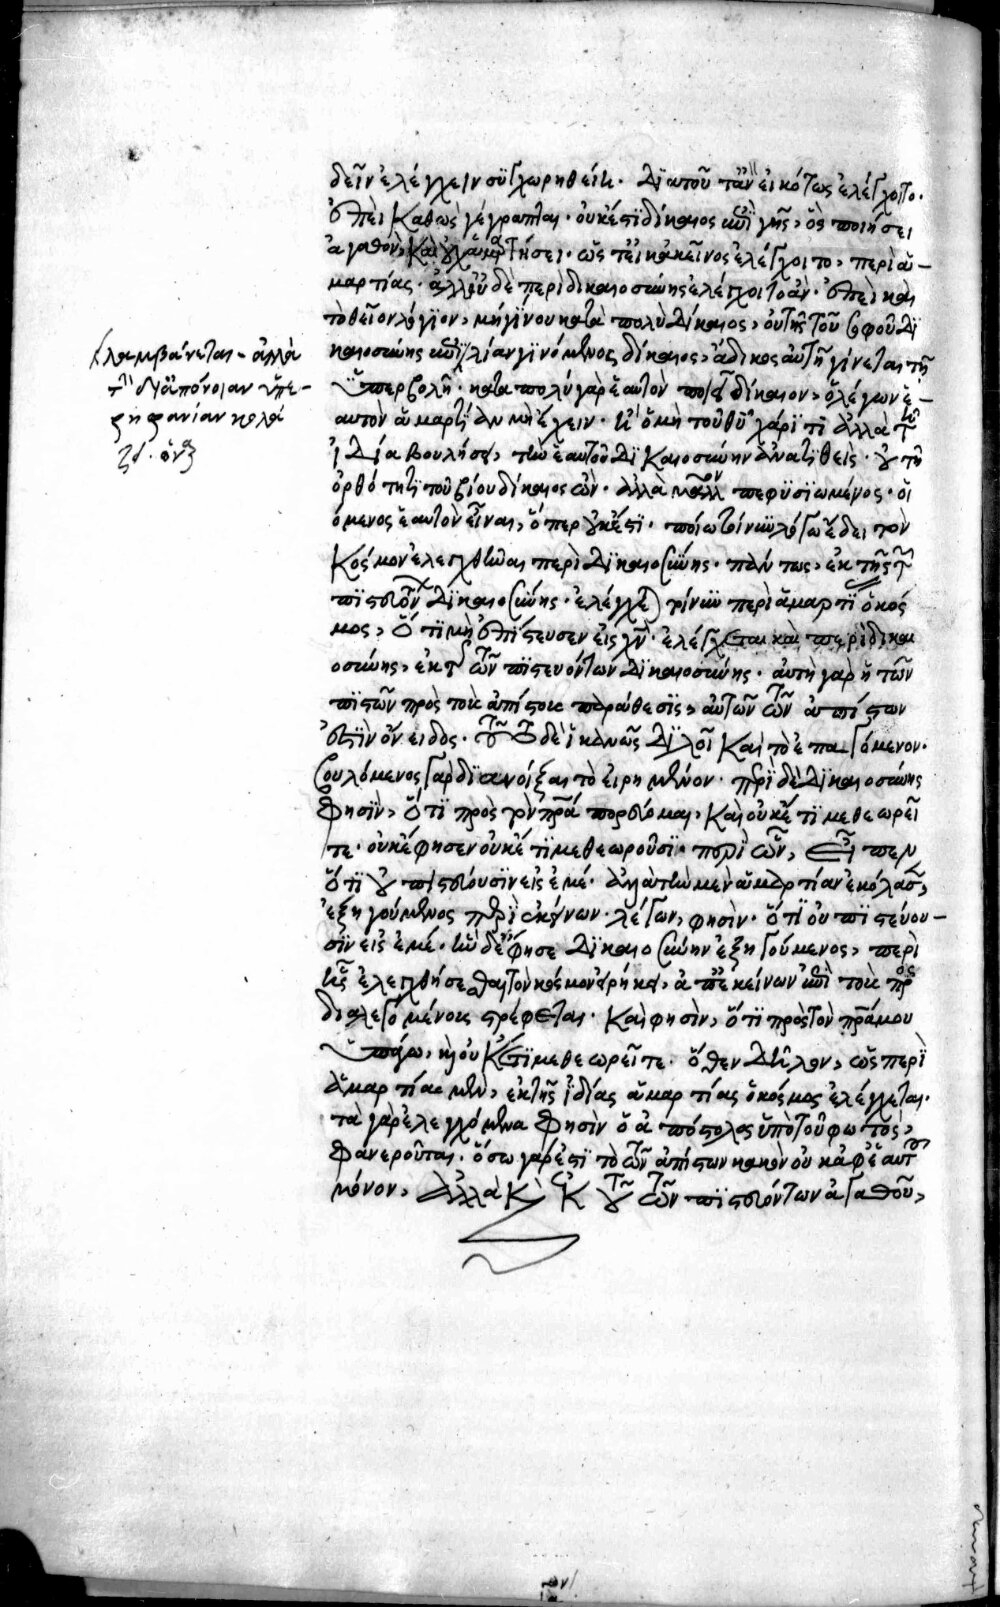 δεῖν ἐλέγχειν συγχωρηθείη. διατοῦταν εἰκότως ἐλέγχοιτο.
ἐπεὶ καθὼς γέγραπται. οὐκ ἔστι δίκαιος ἐπὶ γῆς, ὃς ποιήσει
ἀγαθὸν, καὶ οὐχ ἁμαρτήσει. ὥστε κἀκεῖνος ἐλέγχοιτο, περὶ ἁ-
μαρτίας. ἀλλ' οὐδὲ περὶ δικαιοσύνης ἐλέγχοιτο ἄν. ἐπεὶ καὶ
τὸ θεῖον λόγιον, μὴ γίνου κατὰ πολὺ δίκαιος, οὐ τῆς τοῦ σοφοῦ δι
καιοσύνης λίαν γινόμενος δίκαιος, ἄδικος αὐτῇ γίνεται τῇ
ὑπερβολῇ. κατὰ πολὺ γὰρ ἑαυτὸν ποιεῖ δίκαιον, ὁ λέγων ἑ-
αυτὸν ἁμαρτίαν μὴ ἔχειν. ἢ ὁ μὴ τοῦ θεοῦ χάριτι ἀλλὰ τῇ
ἰδία βουλήσει, τὴν ἑαυτοῦ δικαιοσύνην ἀνατιθείς. οὐ τῇ
ὀρθότητι τοῦ βίου δίκαιος ὤν. ἀλλὰ μᾶλλον πεφυσιωμένος. οἰ
όμενος ἑαυτὸν εἶναι, ὅπερ οὐκ ἔστι. ποίω τίνι λόγω ἔδει τὸν
κόσμον ἐλεγχθῆναι περὶ δικαιοσύνης. πάντως, ἐκ τῆς τῶν
πιστῶν δικαιοσύνης. ἐλέγχεται τοίνυν περὶ ἁμαρτίας ὁ κόσ
μος, ὅτι μὴ ἐπίστευσεν εἰς χν. ἐλέγχεται καὶ περὶ δικαι
οσύνης, ἐκ τῆς τῶν πιστευόντων δικαιοσύνης. αὐτὴ γὰρ ἡ τῶν
πιστῶν πρὸς τοὺς ἀπίστους παράθεσις, αὐτῶν τῶν ἀπίστων
ἐστὶν ὄνειδος. τοῦτο δὲ ἱκανῶς δηλοῖ καὶ τὸ ἐπαγόμενον.
βουλόμενος γὰρ διανοίξαι τὸ εἰρημένον. περὶ δὲ δικαιοσύνης
φησὶν, ὅτι πρὸς τὸν πρα πορεύομαι, καὶ οὐκέτι με θεωρεῖ
τε. οὐκ ἔφησεν οὐκέτι με θεωροῦσι. περὶ ὧν, εἶπεν
ὅτι οὐ πιστεύουσιν εἰς ἐμέ. ἀλλὰ τὴν μὲν ἁμαρτίαν ἐκόλασεν,
ἐξηγούμενος περὶ ἐκείνων. λέγων, φησὶν. ὅτι οὐ πιστεύου-
σιν εἰς ἐμέ. ἣν δὲ ἔφησε δικαιοσύνην ἐξηγούμενος, περὶ
ἧς ἐλεγχθήσεσθαι τὸν κόσμον εἴρηκεν, ἀπ' ἐκείνων ἐπὶ τοὺς πρὸς
διαλεγομένους στρέφεται. καὶ φησὶν, ὅτι πρὸς τὸν πρα μου
ὑπάγω, καὶ οὐκέτι με θεωρεῖτε. ὅθεν δῆλον, ὡς περὶ
ἁμαρτίας μὲν, ἐκ τῆς ἰδίας ἁμαρτίας ὁ κόσμος ἐλέγχεται.
τὰ γὰρ ἐλεγχόμενα φησὶν ὁ ἀπόστολος ὑπὸ τοῦ φωτὸς,
φανεροῦται. ὅσω γάρ ἐστι τὸ τῶν ἀπίστων κακὸν οὐ καθ' ἑαυτὸ
μόνον, ἀλλὰ καὶ ἐκ τοῦ τῶν πιστευόντων ἀγαθοῦ,
λαμβάνεται. ἀλλὰ
τὴν δι' ἀπόνοιαν ὑπε-
ρηφανίαν κολά
ζει.